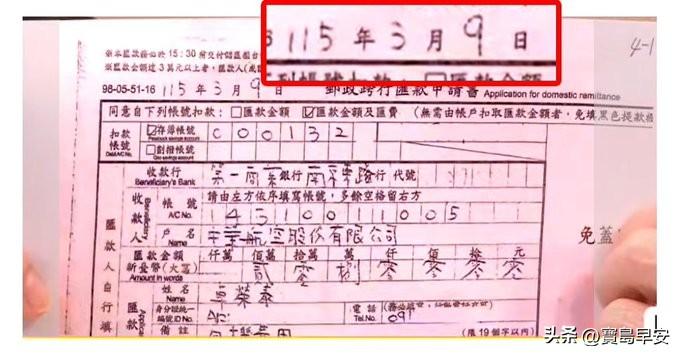 115年3月9日
4-1
※本匯款務必於15:30前交付郵匯櫃台
※匯款金額達3萬元以上者，匯款人
98-05-51-16 115年3月9日 郵政跨行匯款申請書 Application for domestic remittance
同意自下列帳號扣款：□匯款金額 ☑匯款金額及匯費 （無需由帳戶扣取匯款金額者，免填黑色提款欄
扣款帳號 Debit A/C No. ☑存簿帳號 Passbook savings account C000132
□劃撥帳號 Giro savings account
收款行 Beneficiary's Bank 第一商業銀行 南京東路行 代號
收款人 Beneficiary 請由左方依序填寫帳號，多餘空格留右方
帳號 A/C No. 14310011005
戶名 Name 航空股份有限公司
匯款金額 新臺幣（大寫） Amount in words 仟萬 佰萬 拾萬 萬 仟 佰 拾 元
貳 零 捌 零 零 零 零
匯款人自行填
姓名 Name 卓榮泰
身分證統一編號 ID No. 電話 Tel.No. 09
備註 （限19個字以內）
免蓋
头条 @寶島早安